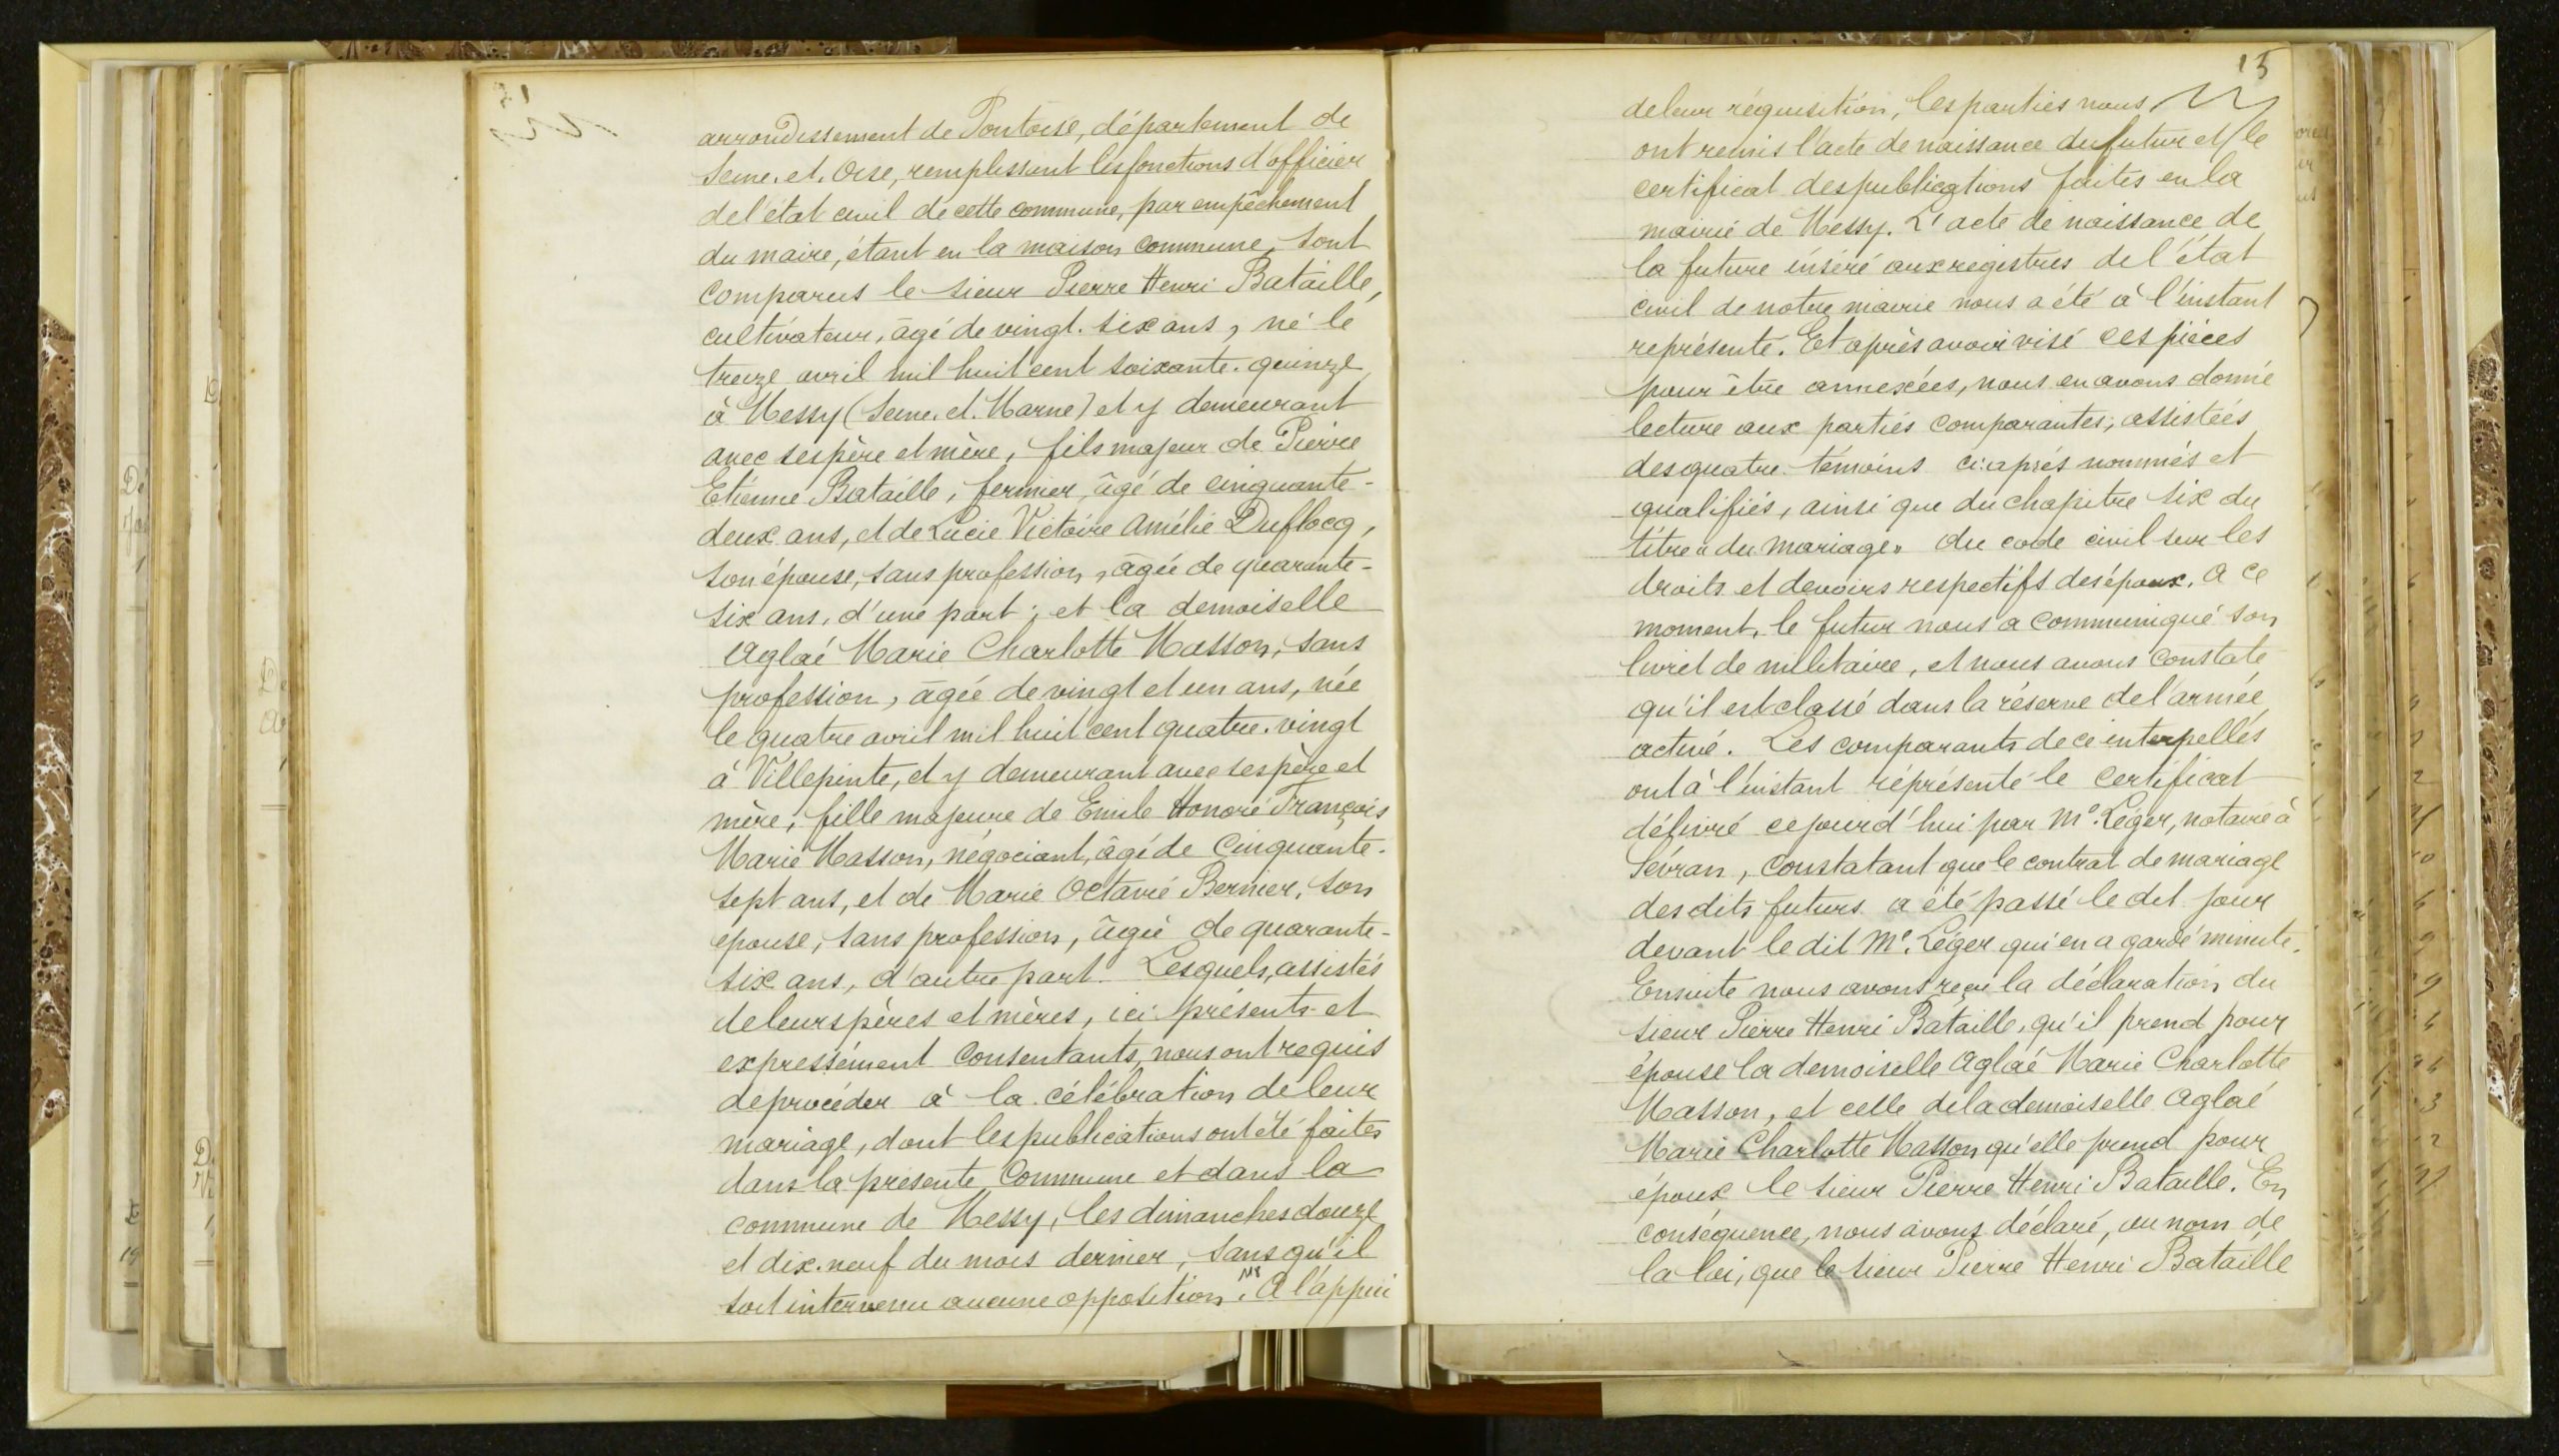 arrondissement de Pontoise, département de
Seine. et. Oise, remplissant les fonctions d'officier
de l'état civil de cette commune, par empêchement
du maire, étant en la maison commune, sont
comparus le sieur Pierre Henri Bataille,
cultivateur, âgé de vingt. six ans, né le
treize avril mil huit cent soixante. quinze
à Messy (Seine. et. Marne) et y demeurant
avec ses père et mère, fils majeur de Pierre
Etienne Bataille, fermier, âgé de cinquante-
deux ans, et de Lucie Victoire Amélie Duflocq,
son épouse, sans profession, âgée de quarante-
six ans, d'une part; et la demoiselle
Aglaé Marie Charlotte Masson, sans
profession, âgée de vingt et un ans, née
le quatre avril mil huit cent quatre. vingt
à Villepinte, et y demeurant avec ses père et
mère, fille majeure de Emile Honoré François
Marie Masson, négociant, âgé de cinquante-
sept ans, et de Marie Octavie Bernier, son
épouse, sans profession, âgée de quarante-
six ans, d'autre part. Lesquels, assistés
de leurs pères et mères, ici présents et
expressément consentants, nous ont requis
de procéder à la célébration de leur
mariage, dont les publications ont été faites
dans la présente commune et dans la
commune de Messy, les dimanches douze
et dix. neuf du mois dernier, sans qu'il
soit intervenu aucune opposition. A l'appui
15
de leur réquisition, les parties nous
ont remis l'acte de naissance du futur et le
certificat des publications faites en la
mairie de Messy. L'acte de naissance de
la future inséré aux registres de l'état
civil de notre mairie nous a été à l'instant
représenté. Et après avoir visé ces pièces
pour être annexées, nous en avons donné
lecture aux parties comparantes, assistées
des quatre témoins ci-après nommés et
qualifiés, ainsi que du chapitre six du
titre "du mariage" du code civil sur les
droits et devoirs respectifs des époux. A ce
moment, le futur nous a communiqué son
livret de militaire, et nous avons constaté
qu'il est classé dans la réserve de l'armée
active. Les comparants de ce interpellés
ont à l'instant représenté le certificat
délivré cejourd'hui par Me. Léger, notaire à
Sevran, constatant que le contrat de mariage
des dits futurs a été passé le dit jour
devant le dit Me. Léger qui en a gardé minute.
Ensuite nous avons reçu la déclaration du
sieur Pierre Henri Bataille, qu'il prend pour
épouse la demoiselle Aglaé Marie Charlotte
Masson, et celle de la demoiselle Aglaé
Marie Charlotte Masson qu'elle prend pour
époux le sieur Pierre Henri Bataille. En
conséquence, nous avons déclaré, au nom de
la loi, que le sieur Pierre Henri Bataille